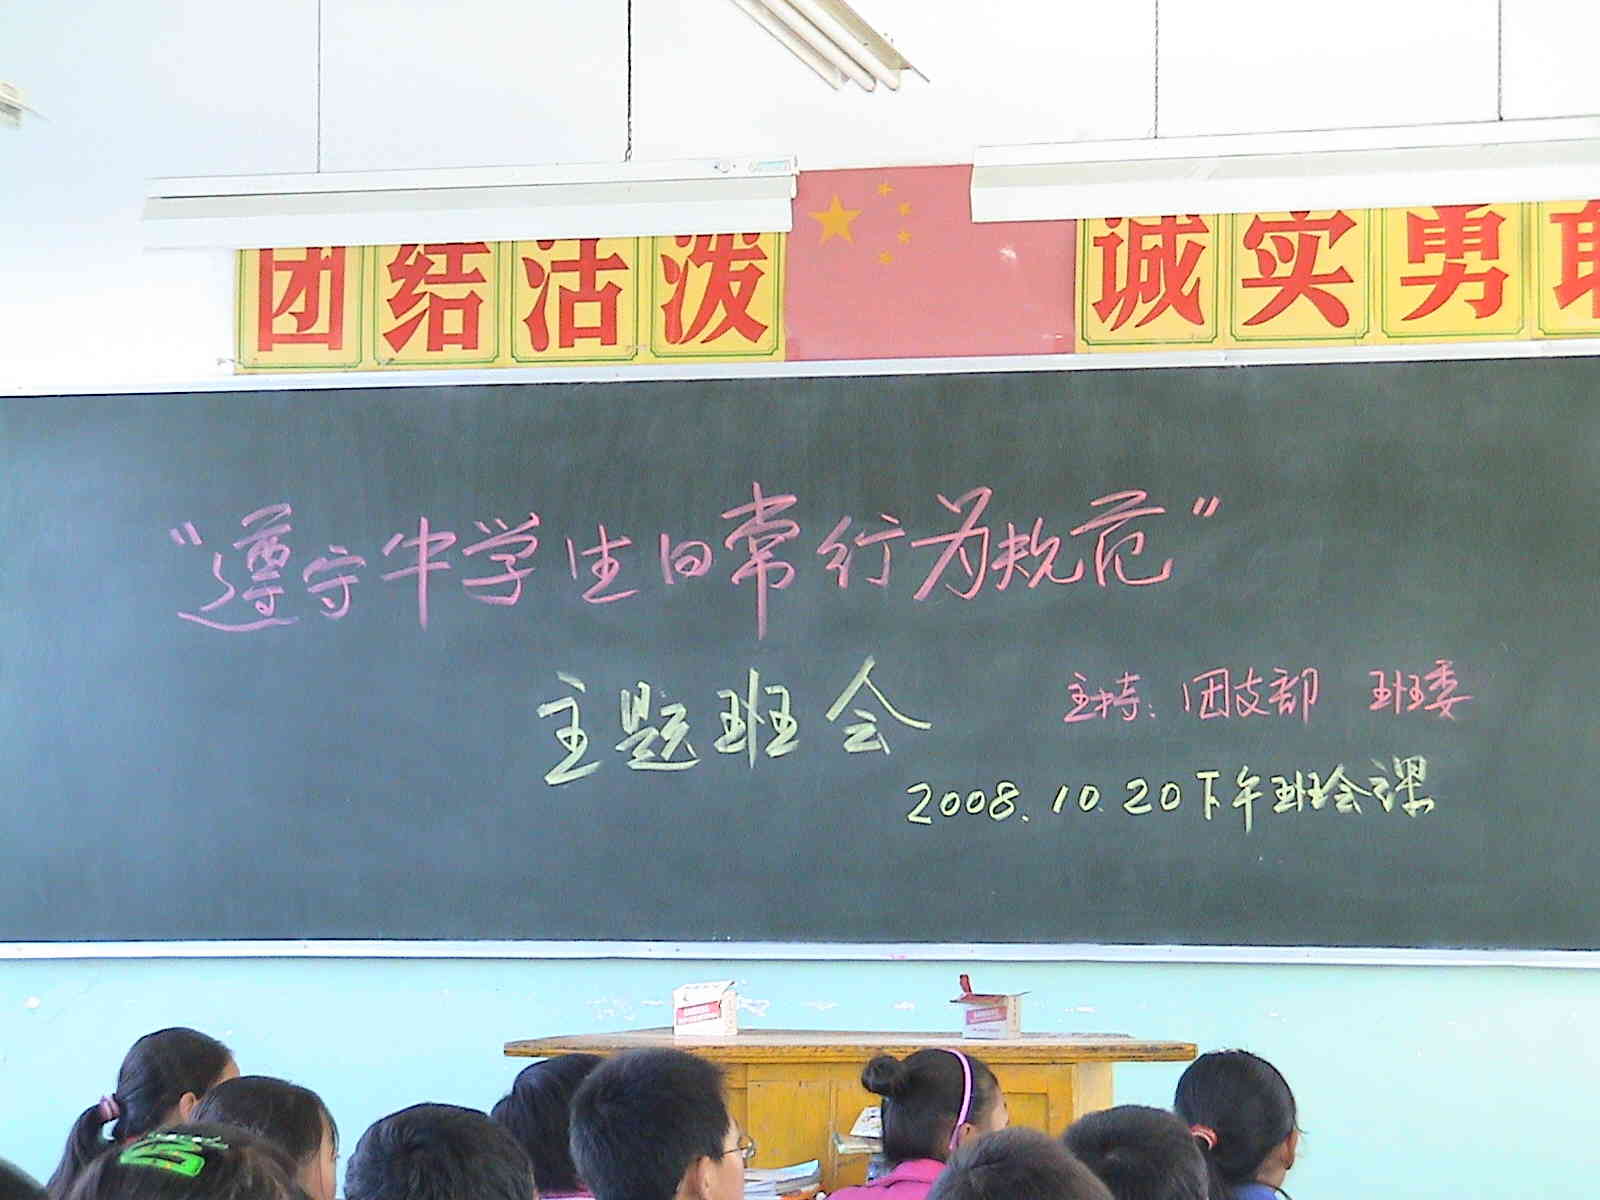 团结活泼
诚实勇敢
“遵守中学生日常行为规范”
主题班会
主持：团支部 班委
2008.10.20下午班会课